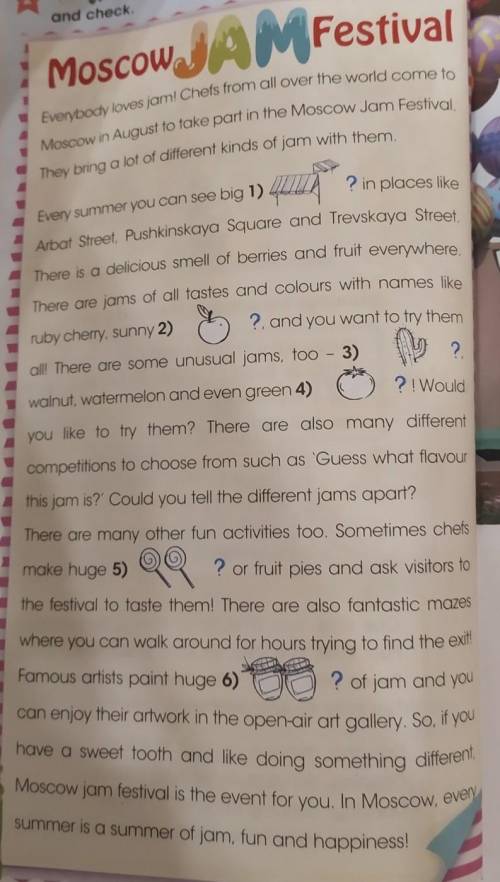 and check.
Moscow JAM Festival
Everybody loves jam! Chefs from all over the world come to
Moscow in August to take part in the Moscow Jam Festival.
They bring a lot of different kinds of jam with them.
Every summer you can see big 1) ? in places like
Arbat Street, Pushkinskaya Square and Trevskaya Street.
There is a delicious smell of berries and fruit everywhere.
There are jams of all tastes and colours with names like
ruby cherry, sunny 2) ?, and you want to try them
all! There are some unusual jams, too – 3) ?,
walnut, watermelon and even green 4) ? ! Would
you like to try them? There are also many different
competitions to choose from such as 'Guess what flavour
this jam is?' Could you tell the different jams apart?
There are many other fun activities too. Sometimes chefs
make huge 5) ? or fruit pies and ask visitors to
the festival to taste them! There are also fantastic mazes
where you can walk around for hours trying to find the exit!
Famous artists paint huge 6) ? of jam and you
can enjoy their artwork in the open-air art gallery. So, if you
have a sweet tooth and like doing something different,
Moscow jam festival is the event for you. In Moscow, every
summer is a summer of jam, fun and happiness!